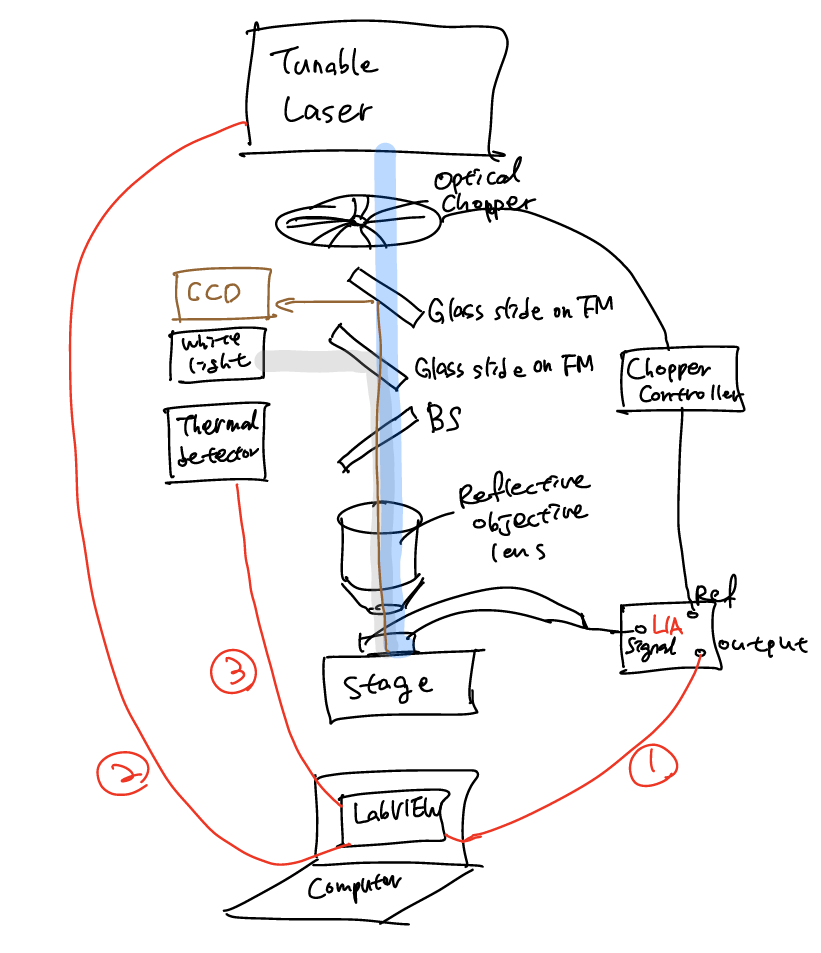 Tunable
Laser
Optical
Chopper
CCD
Glass slide on FM
White
light
Glass slide on FM
Chopper
Controller
Thermal
detector
BS
Reflective
objective
lens
Ref
LIA
Signal
output
Stage
3
2
1
LabVIEW
Computer